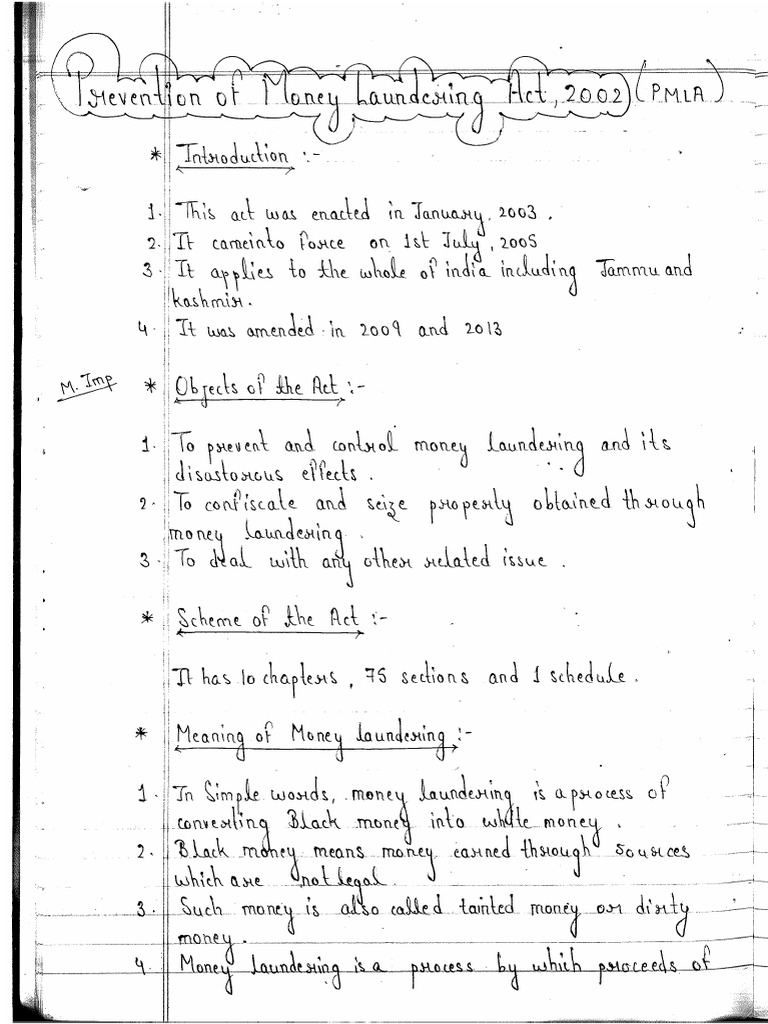 Prevention of Money Laundering Act, 2002 (PMLA)
* Introduction :-
1. This act was enacted in January, 2003.
2. It cameinto force on 1st July, 2005
3. It applies to the whole of india including Jammu and
kashmir.
4. It was amended in 2009 and 2013
M. Imp * Objects of the Act :-
1. To prevent and control money laundering and its
disastorous effects.
2. To confiscate and seize property obtained through
money laundering.
3. To deal with any other related issue.
* Scheme of the Act :-
It has 10 chapters, 75 sections and 1 schedule.
* Meaning of Money laundering :-
1. In Simple words, money laundering is a process of
converting Black money into white money.
2. Black money means money earned through sources
which are not legal.
3. Such money is also called tainted money or dirty
money.
4. Money laundering is a process by which proceeds of